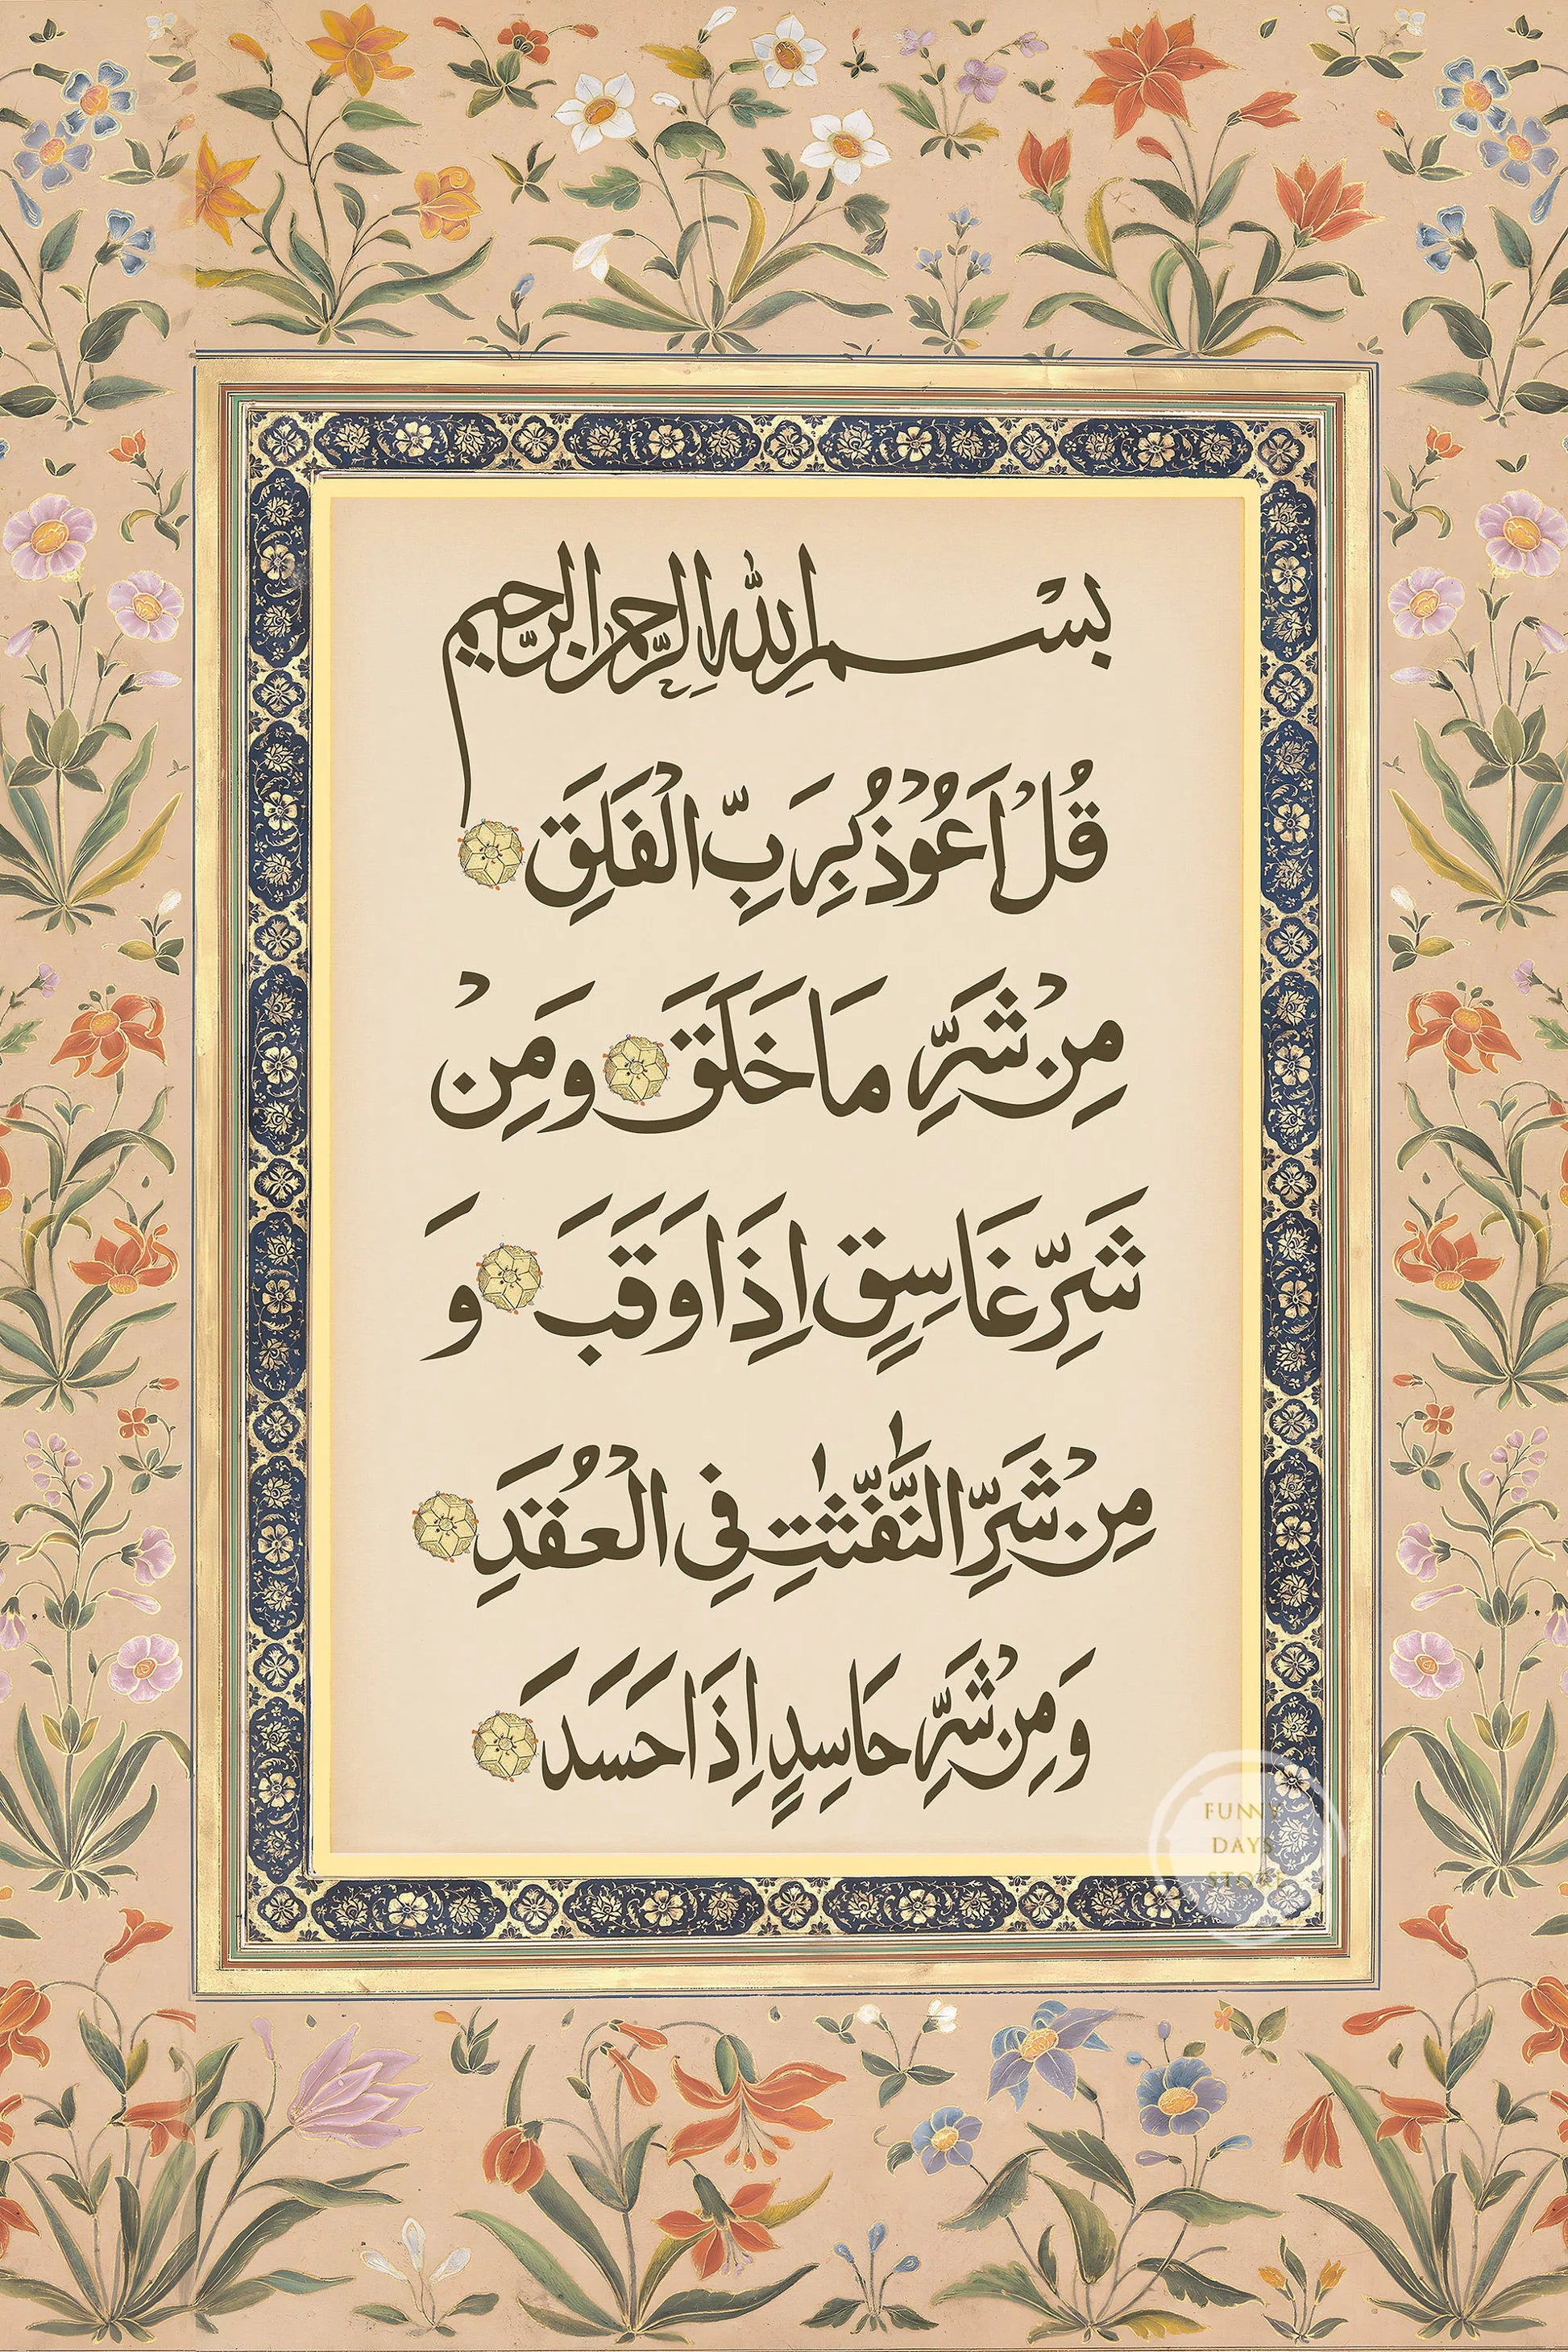 بسم اللهِ الرّحمن الرّحيم
قُلْ اَعُوْذُ بِرَبِّ الْفَلَقِ
مِنْ شَرِّ مَا خَلَقَ وَمِنْ
شَرِّ غَاسِقٍ اِذَا وَقَبَ وَ
مِنْ شَرِّ النَّفّٰثٰتِ فِي الْعُقَدِ
وَمِنْ شَرِّ حَاسِدٍ اِذَا حَسَدَ
FUNNY
DAYS
STORE